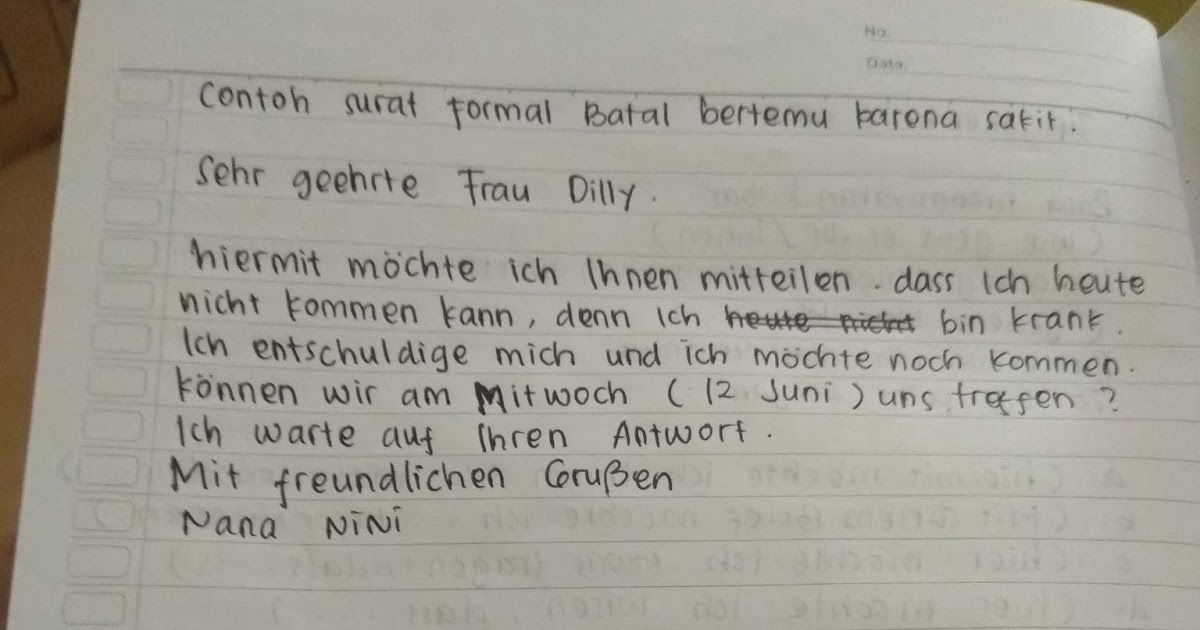 No.
Date.
Contoh surat formal Batal bertemu karena sakit.
Sehr geehrte Frau Dilly.
hiermit möchte ich Ihnen mitteilen. dass Ich heute
nicht kommen kann, denn Ich heute nicht bin krank.
Ich entschuldige mich und ich möchte noch kommen.
können wir am Mitwoch (12 Juni) uns treffen?
Ich warte auf Ihren Antwort.
Mit freundlichen Grußen
Nana NiNi